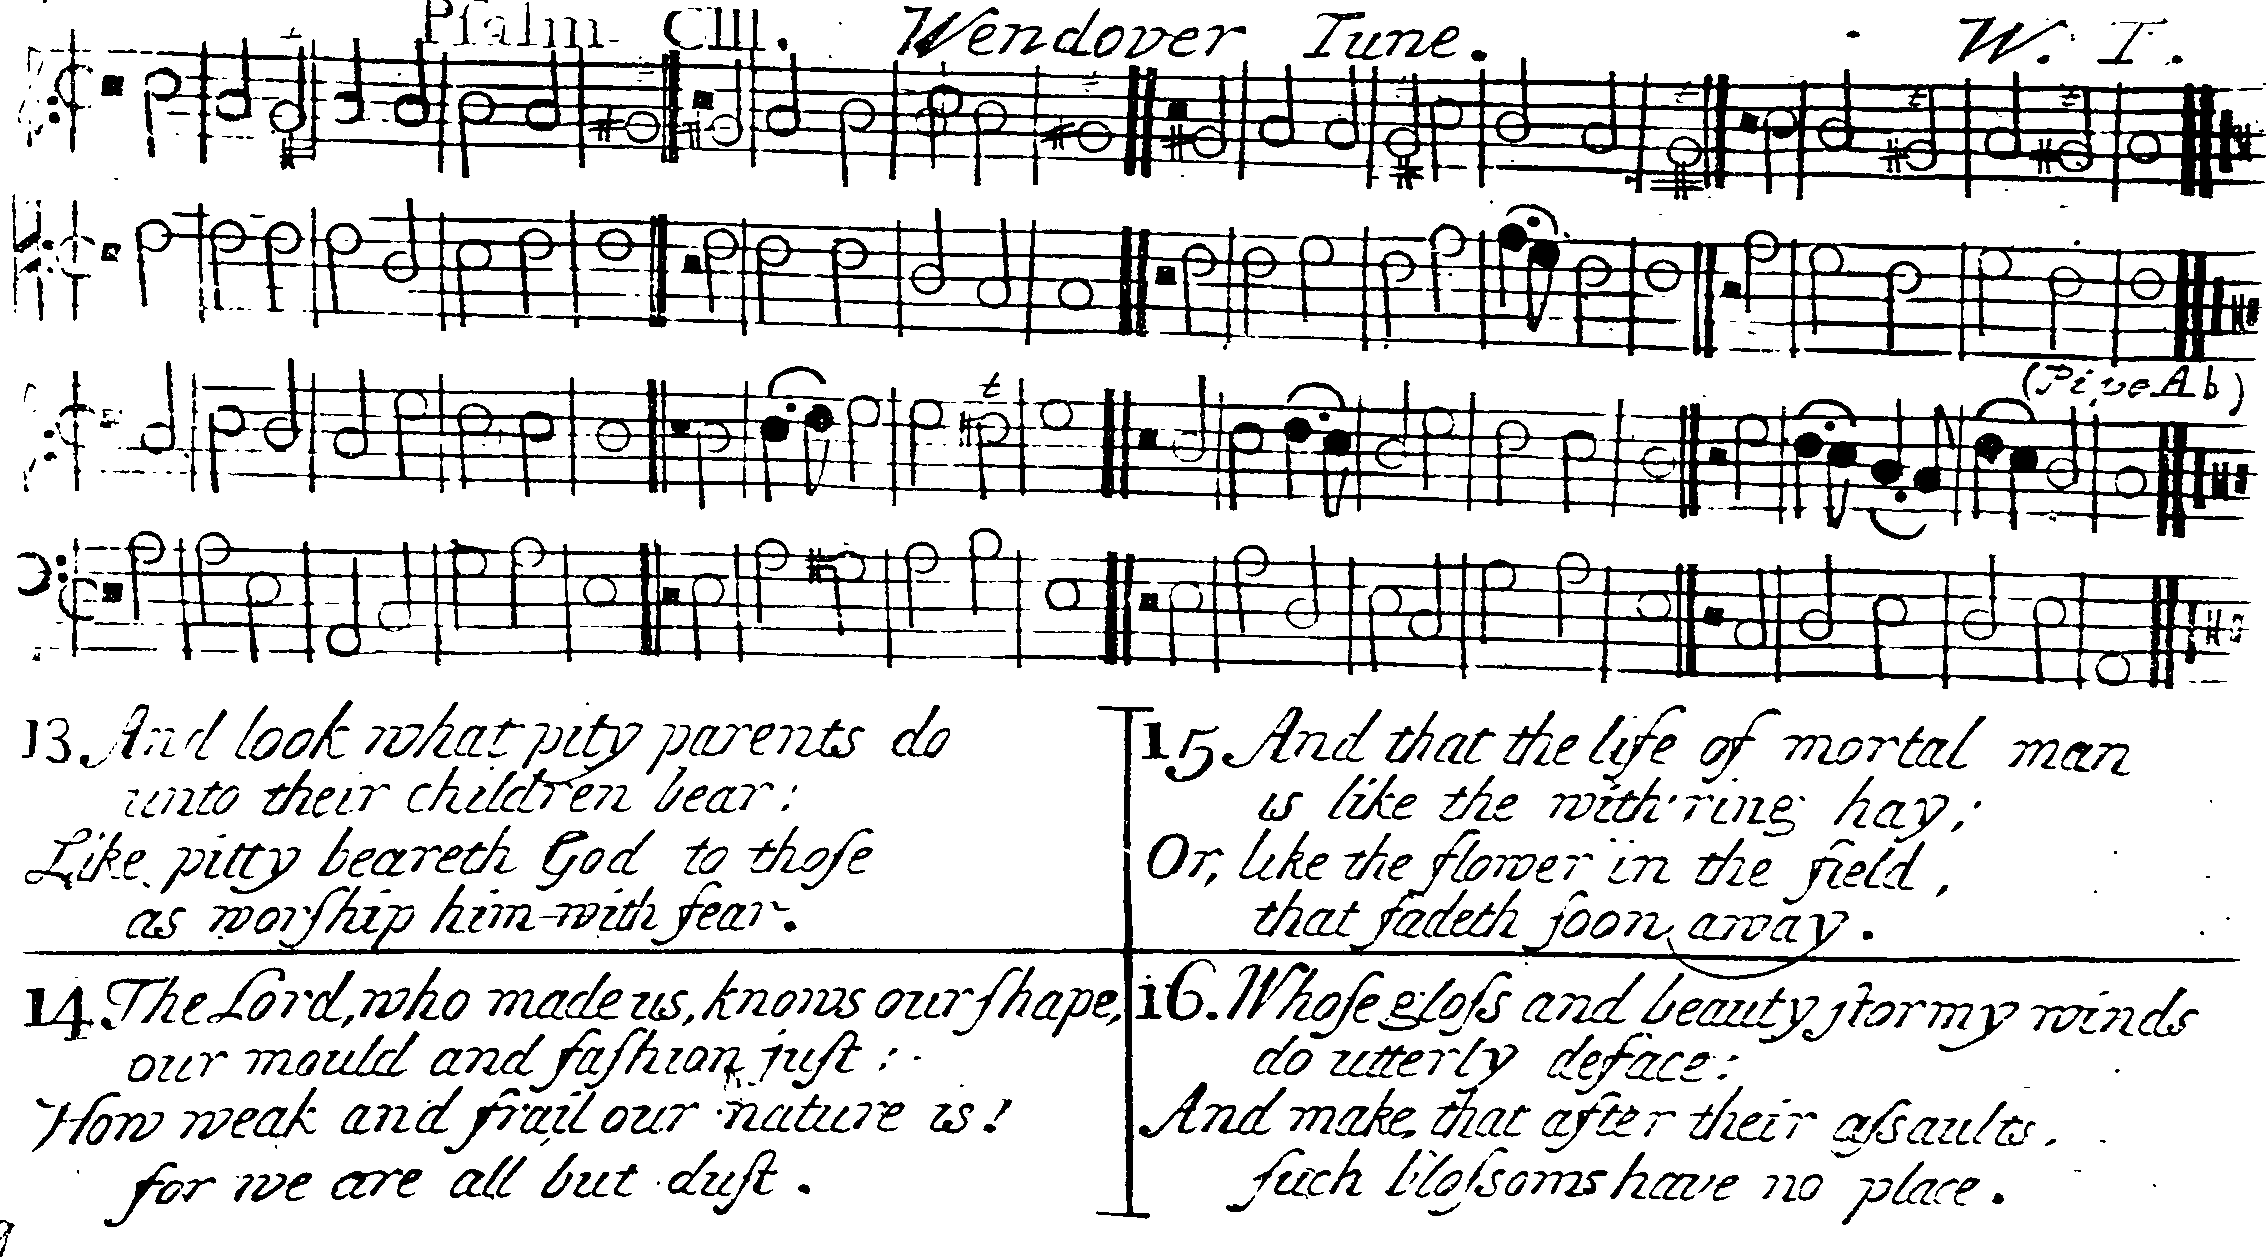 Pſalm CIII. Wendover Tune. W. I.
(Pipe A b)
13. And look what pity parents do
unto their children bear:
Like pitty beareth God to thoſe
as worſhip him with fear.
14. The Lord, who made us, knows our ſhape,
our mould and faſhion juſt:
How weak and frail our nature is!
for we are all but duſt.
15. And that the life of mortal man
is like the with'ring hay;
Or, like the flower in the field,
that fadeth ſoon away.
16. Whoſe gloſs and beauty ſtormy winds
do utterly deface:
And make, that after their aſsaults.
ſuch bloſsoms have no place.